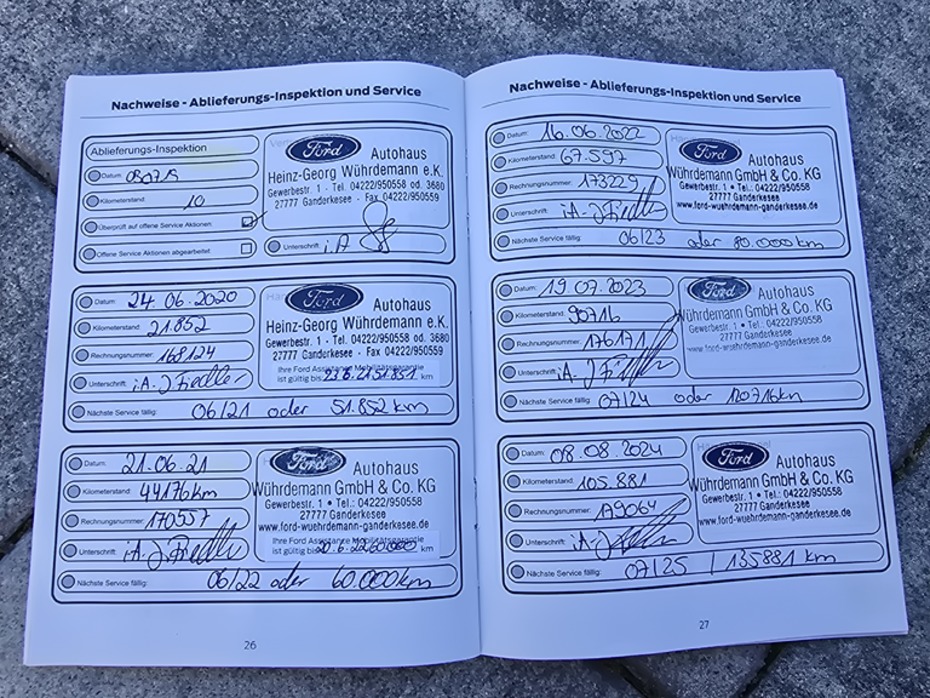 Nachweise - Ablieferungs-Inspektion und Service
Ablieferungs-Inspektion
Datum: 030719
Kilometerstand: 10
Überprüft auf offene Service Aktionen:
Offene Service Aktionen abgearbeitet:
Ford
Autohaus
Heinz-Georg Wührdemann e.K.
Gewerbestr. 1 - Tel. 04222/950558 od. 3680
27777 Ganderkesee - Fax 04222/950559
Unterschrift: i.A
Datum: 24.06.2020
Kilometerstand: 21.852
Rechnungsnummer: 168124
Unterschrift: i.A. J Fiedler
Ford
Autohaus
Heinz-Georg Wührdemann e.K.
Gewerbestr. 1 - Tel. 04222/950558 od. 3680
27777 Ganderkesee - Fax 04222/950559
Ihre Ford Assistance Mobilitätsgarantie
ist gültig bis: 23.6.21 51.851 km
Nächste Service fällig: 06/21 oder 51.852 km
Datum: 21.06.21
Kilometerstand: 44176km
Rechnungsnummer: 170557
Unterschrift: i.A. J Fiedler
Ford
Autohaus
Wührdemann GmbH & Co. KG
Gewerbestr. 1 • Tel.: 04222/950558
27777 Ganderkesee
www.ford-wuehrdemann-ganderkesee.de
Ihre Ford Assistance Mobilitätsgarantie
ist gültig bis: 20.6.22 60000 km
Nächste Service fällig: 06/22 oder 60.000km
26
Nachweise - Ablieferungs-Inspektion und Service
Datum: 16.06.2022
Kilometerstand: 67.597
Rechnungsnummer: 173229
Unterschrift: i.A. J Fiedler
Ford
Autohaus
Wührdemann GmbH & Co. KG
Gewerbestr. 1 • Tel.: 04222/950558
27777 Ganderkesee
www.ford-wuehrdemann-ganderkesee.de
Nächste Service fällig: 06/23 oder 80.000km
Datum: 19.07.2023
Kilometerstand: 90716
Rechnungsnummer: 176171
Unterschrift: i.A. J Fiedler
Ford
Autohaus
Wührdemann GmbH & Co. KG
Gewerbestr. 1 • Tel.: 04222/950558
27777 Ganderkesee
www.ford-wuehrdemann-ganderkesee.de
Nächste Service fällig: 07/24 oder 120716km
Datum: 08.08.2024
Kilometerstand: 105.881
Rechnungsnummer: 179064
Unterschrift: i.A. J Fiedler
Ford
Autohaus
Wührdemann GmbH & Co. KG
Gewerbestr. 1 • Tel.: 04222/950558
27777 Ganderkesee
www.ford-wuehrdemann-ganderkesee.de
Nächste Service fällig: 07/25 / 135881 km
27